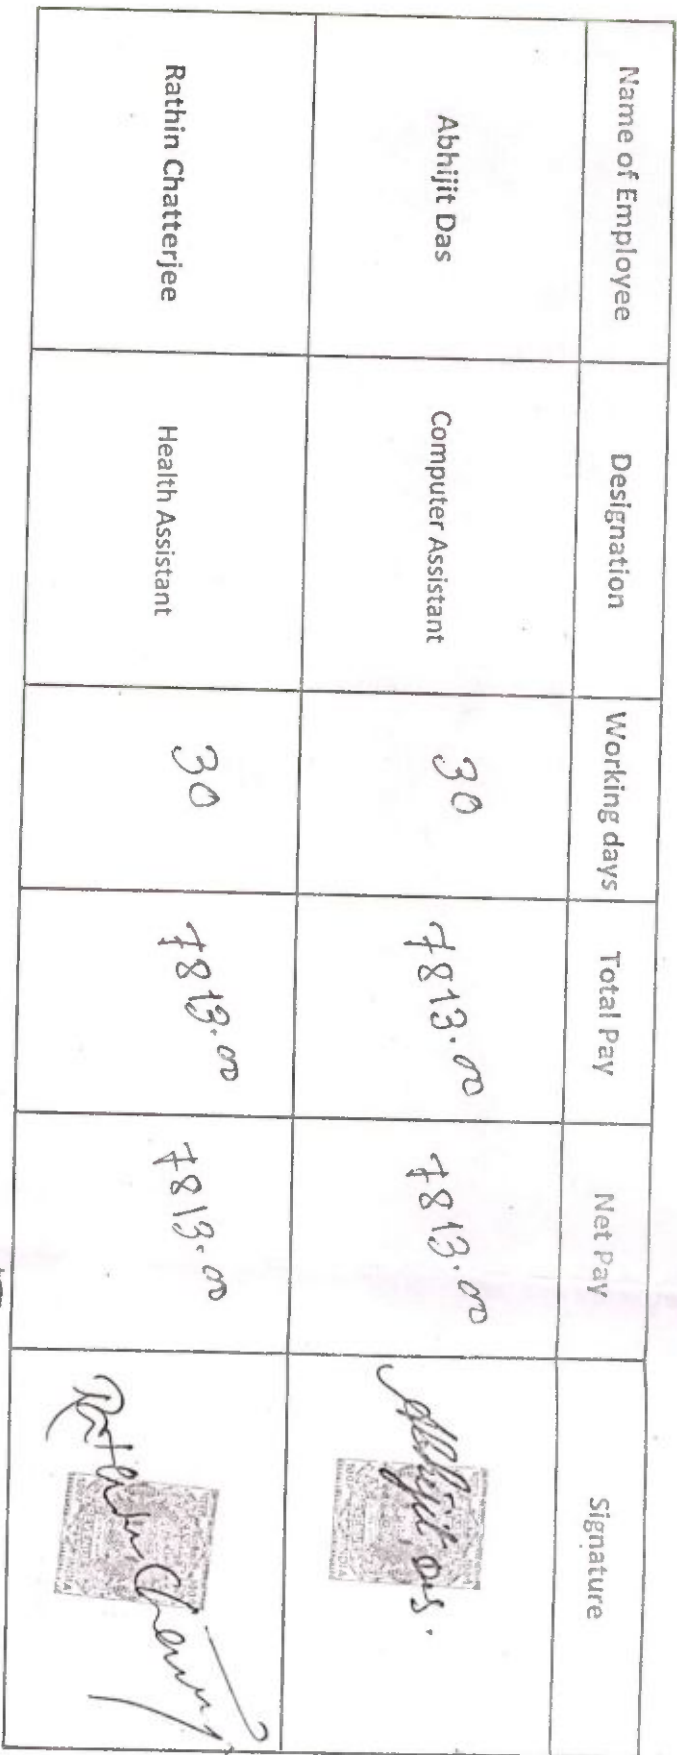 Name of Employee Designation Working days Total Pay Net Pay Signature
Abhijit Das Computer Assistant 30 7813.00 7813.00 Abhijit Das.
Rathin Chatterjee Health Assistant 30 7813.00 7813.00